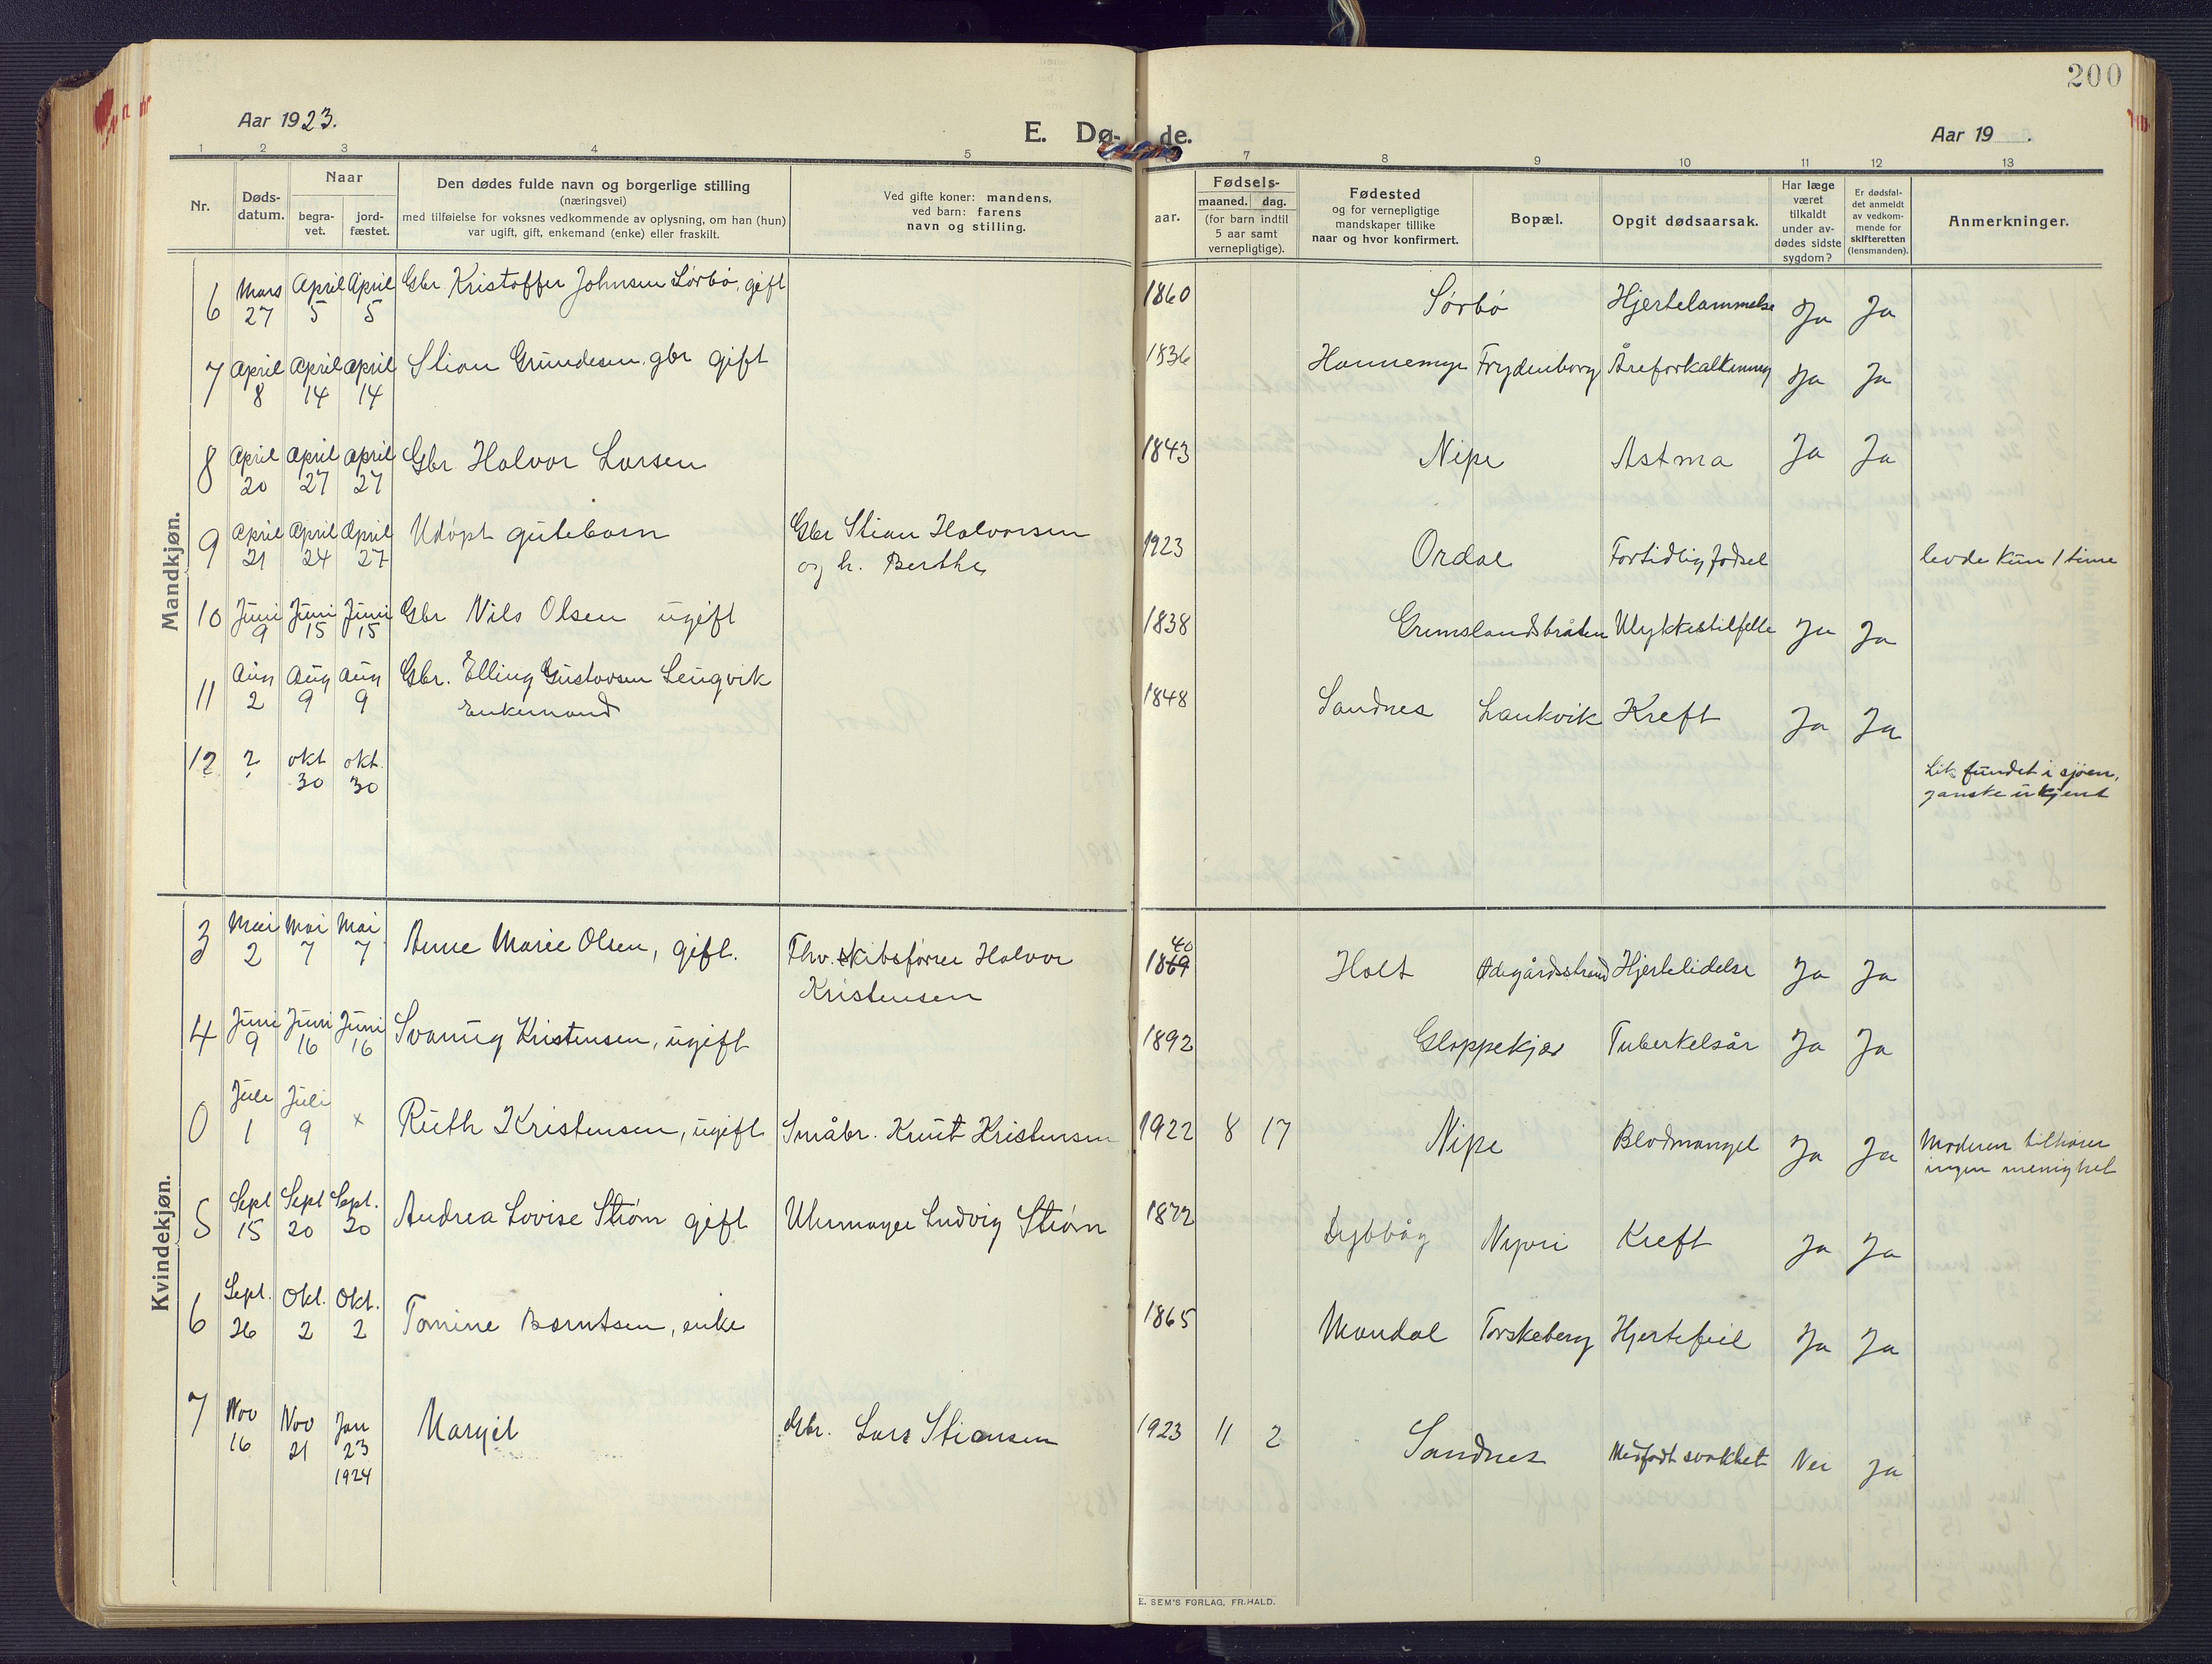 200
Aar 1923.
E. Dø- de.
Aar 19 .
1 2 3 4 5 7 8 9 10 11 12 13
Nr.
Døds-
datum.
Naar
begra-
vet.
jord-
fæstet.
Den dødes fulde navn og borgerlige stilling
(næringsvei)
med tilføielse for voksnes vedkommende av oplysning, om han (hun)
var ugift, gift, enkemand (enke) eller fraskilt.
Ved gifte koner: mandens,
ved barn: farens
navn og stilling.
aar.
Fødsels-
maaned. dag.
(for barn indtil
5 aar samt
vernepligtige).
Fødested
og for vernepligtige
mandskaper tillike
naar og hvor konfirmert.
Bopæl.
Opgit dødsaarsak.
Har læge
været
tilkaldt
under av-
dødes sidste
sygdom?
Er dødsfal-
det anmeldt
av vedkom-
mende for
skifteretten
(lensmanden).
Anmerkninger.
Mandkjøn.
6 Mars 27 April 5 April 5 Gbr. Kristoffer Johnsen Sørbø, gift 1860 Sørbø Hjertelammelse Ja Ja
7 April 8 April 14 April 14 Stian Grundesen, gbr gift 1836 Hannemyr Frydenborg Åreforkalkning Ja Ja
8 April 20 April 27 April 27 Gbr Halvor Larsen 1843 Nipe Astma Ja Ja
9 April 21 April 24 April 27 Udøpt gutebarn Gbr Stian Halvorsen
og h. Berthe 1923 Ordal Fortidlig fødsel levde kun 1 time
10 Juni 9 Juni 15 Juni 15 Gbr Nils Olsen ugift 1838 Grimslandsbråten Ulykkestilfelle Ja Ja
11 Aug 2 Aug 9 Aug 9 Gbr. Elling Gustavsen Lengvik
Enkemand 1848 Sandnes Lankvik Kreft Ja Ja
12 ? okt 30 okt. 30 Lik fundet i sjøen,
ganske ukjent
Kvindekjøn.
3 Mai 2 Mai 7 Mai 7 Anne Marie Olsen, gift. Fhv. skibsfører Halvor
Kristensen 1869 40 Holt Ødegårdsstrand Hjertelidelse Ja Ja
4 Juni 9 Juni 16 Juni 16 Svanug Kristensen, ugift 1892 Gloppekjær Tuberkelsår Ja Ja
0 Juli 1 Juli 9 x Ruth Kristensen, ugift Småbr. Knut Kristensen 1922 8 17 Nipe Blodmangel Ja Ja Moderen tilhører
ingen menighet
5 Sept 15 Sept 20 Sept. 20 Andrea Lovise Strøm gift Uhrmager Ludvig Strøm 1872 Dybvåg Kreft Ja Ja
6 Sept. 26 Okt. 2 Okt. 2 Tomine Berntsen, enke 1865 Mandal Torskeberg Hjertefeil Ja Ja
7 Nov 16 Nov 21 Jan 23 1924 Margit Gbr. Lars Stiansen 1923 11 2 Sandnes Medfødt svakhet Nei Ja
E. SEM'S FORLAG, FR.HALD.